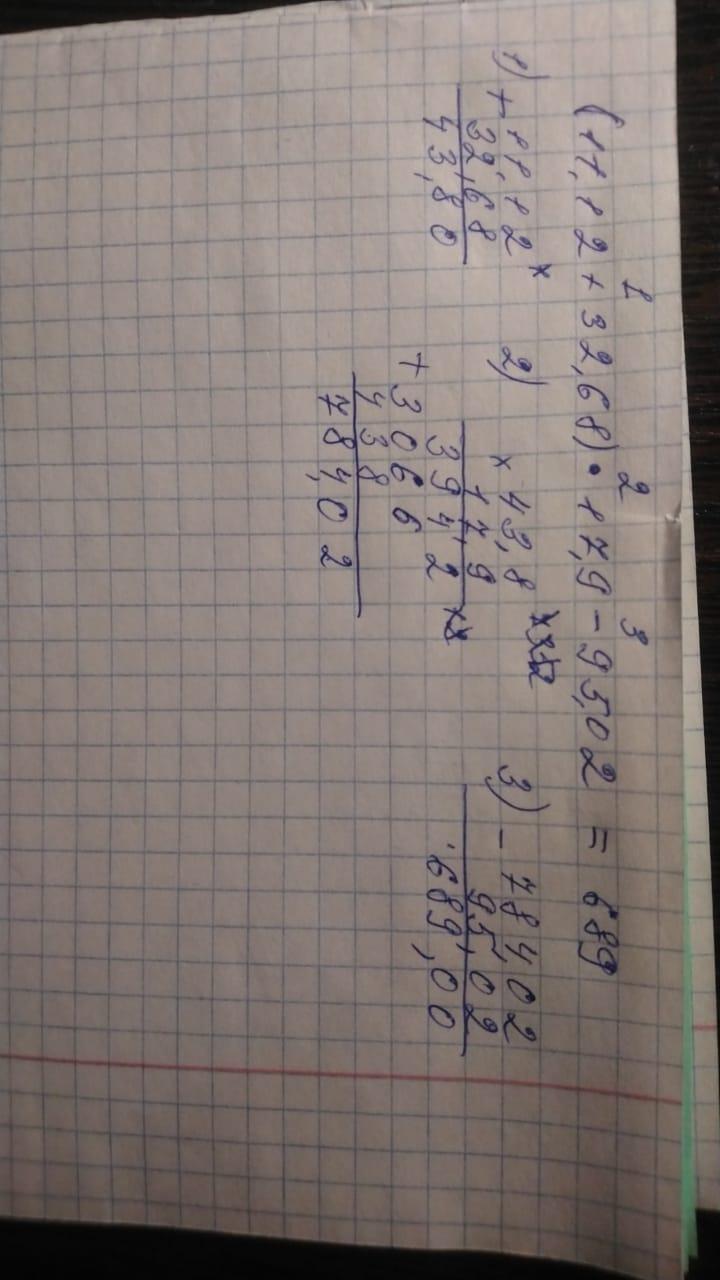 1 2 3
(11,12 + 32,68) • 17,9 - 95,02 = 689
1) + 11,12
32,68
43,80
2) × 43,8
17,9
3942
+ 3066
438
784,02
3) - 78402
95,02
689,00